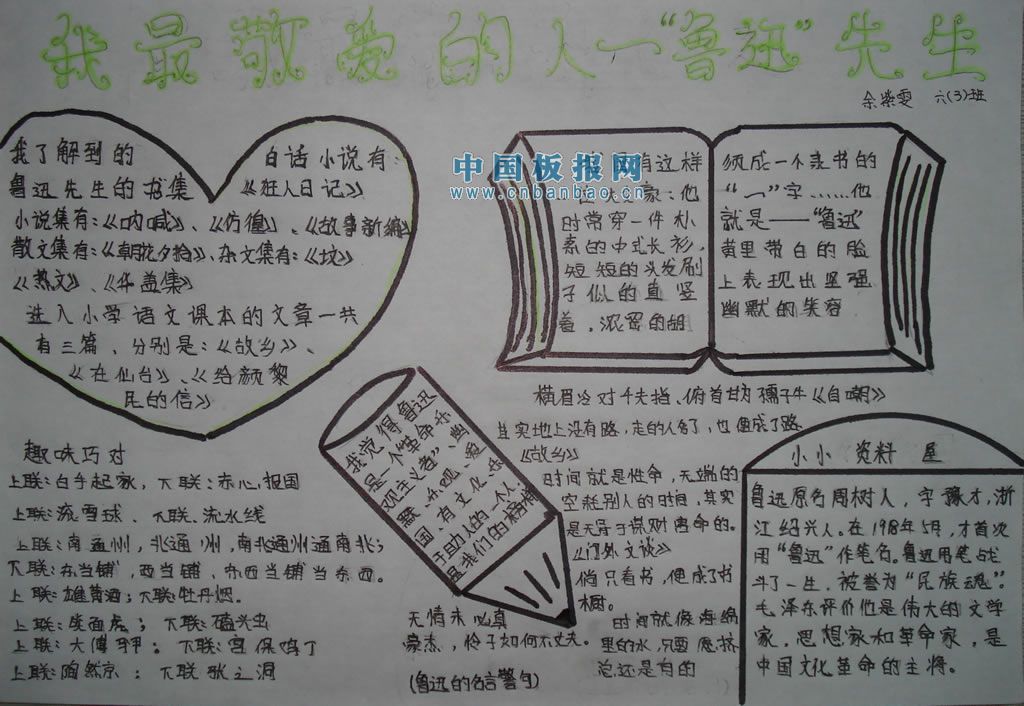 我最敬爱的人一“鲁迅”先生
余紫雯 六(3)班
我了解到的
鲁迅先生的书集
白话小说有:
《狂人日记》
小说集有:《呐喊》、《仿徨》、《故事新编》
散文集有:《朝花夕拾》、杂文集有:《坟》
《热文》、《华盖集》
选入小学语文课本的文章一共
有三篇、分别是:《故乡》、
《在仙台》、《给颜黎
民的信》
中国板报网
www.cnbanbao.cn
有这样
家:他
时常穿一件朴
素的中式长衫,
短短的头发刷
子似的直竖
着,浓密的胡
须成一个隶书的
“一”字……他
就是——“鲁迅”
黄里带白的脸
上表现出坚强
幽默的笑容
横眉冷对千夫指,俯首甘为孺子牛《自嘲》
其实地上没有路,走的人多了,也便成了路
《故乡》
时间就是性命,无端的
空耗别人的时间,其实
是无异于谋财害命的。
《门外文谈》
倘只看书,便成了书
橱。
时间就像海绵
里的水,只要愿挤
总还是有的
无情未必真
豪杰,怜子如何不丈夫。
(鲁迅的名言警句)
我觉得鲁迅
是一个革命乐
观主义者”、幽
默、乐观、爱
国、有文化、乐
于助人的一个人,
是我们的榜样
趣味巧对
上联:白手起家,下联:赤心报国
上联:滚雪球、下联、流水线
上联:南通州,北通州,南北通州通南北;
下联:东当铺,西当铺,东西当铺当东西。
上联:雄黄酒;下联:牡丹烟。
上联:吴面虎;下联:磕头虫
上联:大傅甲。下联:宫保鸡丁
上联:陶然亭:下联张之洞
小小 资料 屋
鲁迅原名周树人,字豫才,浙
江绍兴人。在1918年5月,才首次
用“鲁迅”作笔名。鲁迅用笔战
斗了一生,被誉为“民族魂”。
毛泽东评价他是伟大的文学
家,思想家和革命家,是
中国文化革命的主将。